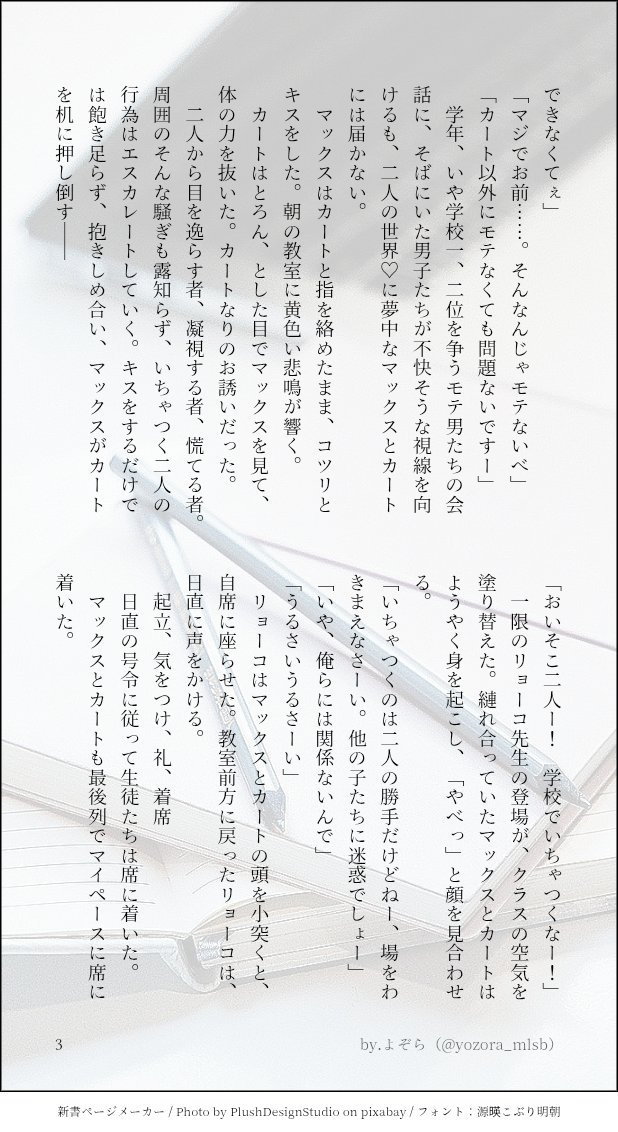 できなくてぇ」
「マジでお前……。そんなんじゃモテないべ」
「カート以外にモテなくても問題ないですー」
　学年、いや学校一、二位を争うモテ男たちの会
話に、そばにいた男子たちが不快そうな視線を向
けるも、二人の世界♡に夢中なマックスとカート
には届かない。
　マックスはカートと指を絡めたまま、コツリと
キスをした。朝の教室に黄色い悲鳴が響く。
　カートはとろん、とした目でマックスを見て、
体の力を抜いた。カートなりのお誘いだった。
　二人から目を逸らす者、凝視する者、慌てる者。
周囲のそんな騒ぎも露知らず、いちゃつく二人の
行為はエスカレートしていく。キスをするだけで
は飽き足らず、抱きしめ合い、マックスがカート
を机に押し倒す――
「おいそこ二人ー！　学校でいちゃつくなー！」
　一限のリョーコ先生の登場が、クラスの空気を
塗り替えた。縺れ合っていたマックスとカートは
ようやく身を起こし、「やべっ」と顔を見合わせ
る。
「いちゃつくのは二人の勝手だけどねー、場をわ
きまえなさーい。他の子たちに迷惑でしょー」
「いや、俺らには関係ないんで」
「うるさいうるさーい」
　リョーコはマックスとカートの頭を小突くと、
自席に座らせた。教室前方に戻ったリョーコは、
日直に声をかける。
　起立、気をつけ、礼、着席
　日直の号令に従って生徒たちは席に着いた。
　マックスとカートも最後列でマイペースに席に
着いた。
3
by.よぞら（@yozora_mlsb）
新書ページメーカー / Photo by PlushDesignStudio on pixabay / フォント：源暎こぶり明朝